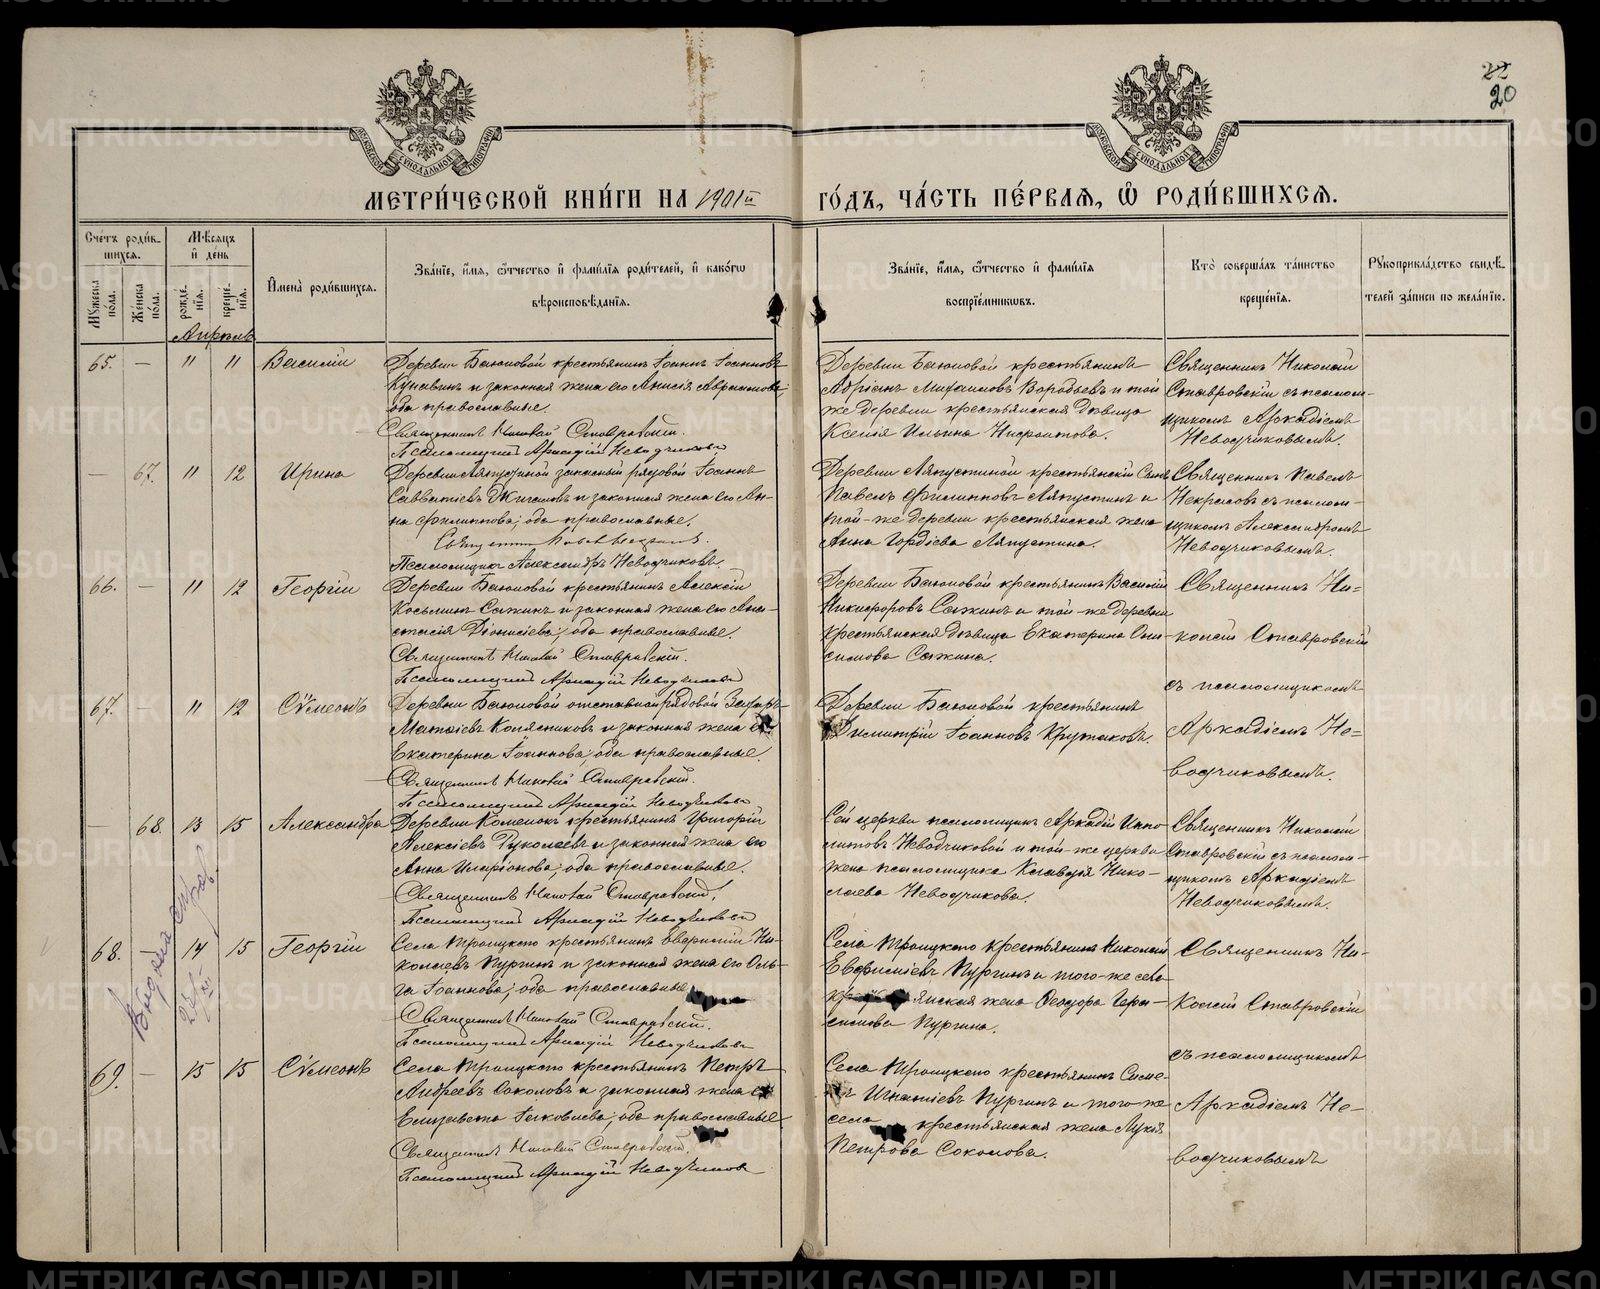 22
20
МЕТРИ́ЧЕСКОЙ КНИ́ГИ НА 1901й ГО́ДЪ, ЧА́СТЬ ПЕ́РВАЯ, Ѿ РОДИ́ВШИХСЯ.
Сче́тъ роди́в-
шихся.
Мꙋжеска по́ла.
Же́нска по́ла.
Мѣ́сяцъ
и҆ де́нь
рожде́нїя.
креще́нїя.
И҆мена̀ роди́вшихся.
Зва́нїе, и҆́мя, ѻ҆́тчество и҆ фами́лїя роди́телей, и҆ како́гѡ
вѣроисповѣ́данїя.
Зва́нїе, и҆́мя, ѻ҆́тчество и҆ фами́лїя
воспрїе́мниковъ.
Кто̀ соверша́лъ та́инство
креще́нїя.
Рꙋкоприкла́дство свидѣ́-
телей за́писи по жела́нїю.
Апрѣль
65. — 11 11 Василій
Деревни Баюновой крестьянинъ Іоаннъ Іоанновъ
Кунавинъ и законная жена его Анисія Авраамова,
оба православные.
Священникъ Николай Ставровскій.
Псаломщикъ Аркадій Неводчиковъ
Деревни Баюновой крестьянинъ
Адріанъ Михаиловъ Воробьевъ и той
же деревни крестьянская дѣвица
Ксенія Ильина
Священникъ Николай
Ставровскій съ псалом-
щикомъ Аркадіемъ
Неводчиковымъ.
— 67. 11 12 Ирина
Деревни Ляпустиной запасный рядовой Іоаннъ
Савватіевъ и законная жена его Ан-
на Филиппова; оба православные.
Священникъ Павелъ Некрасовъ.
Псаломщикъ Александръ Неводчиковъ.
Деревни Ляпустиной крестьянскій сынъ
Павелъ Филипповъ Ляпустинъ и
той-же деревни крестьянская жена
Анна Гордіева Ляпустина.
Священникъ Павелъ
Некрасовъ съ псалом-
щикомъ Александромъ
Неводчиковымъ.
66. — 11 12 Георгій
Деревни Баюновой крестьянинъ Алексій
Косьминъ Сажинъ и законная жена его Ана-
стасія Діонисіева; оба православные.
Священникъ Николай Ставровскій.
Псаломщикъ Аркадій Неводчиковъ
Деревни Баюновой крестьянинъ Василій
Никифоровъ Сажинъ и той-же деревни
крестьянская дѣвица Екатерина Они-
симова Сажина.
Священникъ Ни-
колай Ставровскій
съ псаломщикомъ
Аркадіемъ Не-
водчиковымъ.
67. — 11 12 Сѵмеонъ
Деревни Баюновой отставной рядовой Захаръ
Матѳіевъ Колясниковъ и законная жена его
Екатерина Іоаннова; оба православные.
Священникъ Николай Ставровскій.
Псаломщикъ Аркадій Неводчиковъ
Деревни Баюновой крестьянинъ
Димитрій Іоанновъ Крутаковъ.
— 68. 13 15 Александра
Деревни Коменокъ крестьянинъ Григорій
Алексіевъ Руколеевъ и законная жена его
Анна Иларіонова; оба православные.
Священникъ Николай Ставровскій.
Псаломщикъ Аркадій Неводчиковъ
Сей церкви псаломщикъ Аркадій Иппо-
литовъ Неводчиковъ и той-же церкви
жена псаломщика Клавдія Нико-
лаева Неводчикова.
Священникъ Николай
Ставровскій съ псалом-
щикомъ Аркадіемъ
Неводчиковымъ.
68. — 14 15 Георгій
Села Троицкаго крестьянинъ Ни-
колаевъ Пургинъ и законная жена его Оль-
га Іоаннова; оба православные.
Священникъ Николай Ставровскій.
Псаломщикъ Аркадій Неводчиковъ
Села Троицкаго крестьянинъ Николай
Пургинъ и того-же села
янская жена Ѳеодора Гера-
симова Пургина.
Священникъ Ни-
колай Ставровскій
съ псаломщикомъ
Аркадіемъ Не-
водчиковымъ
69. — 15 15 Сѵмеонъ
Села Троицкаго крестьянинъ Петръ
Андреевъ Соколовъ и законная жена его
Елизавета Іаковлева; оба православные
Священникъ Николай Ставровскій.
Псаломщикъ Аркадій Неводчиковъ
Села Троицкаго крестьянинъ Симе-
нъ Игнатіевъ Пургинъ и того-же
села крестьянская жена Лукія
Петрова Соколова.
METRIKI.GASO-URAL.RU